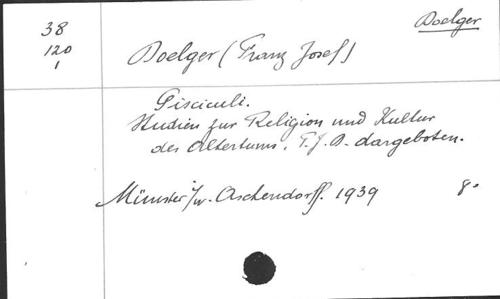 Doelger
38
120
1
Doelger (Franz Josef)
Pisciculi.
Studien zur Religion und Kultur
des Altertums. F. J. D. dargeboten.
Münster i/w. Aschendorff. 1939 8°